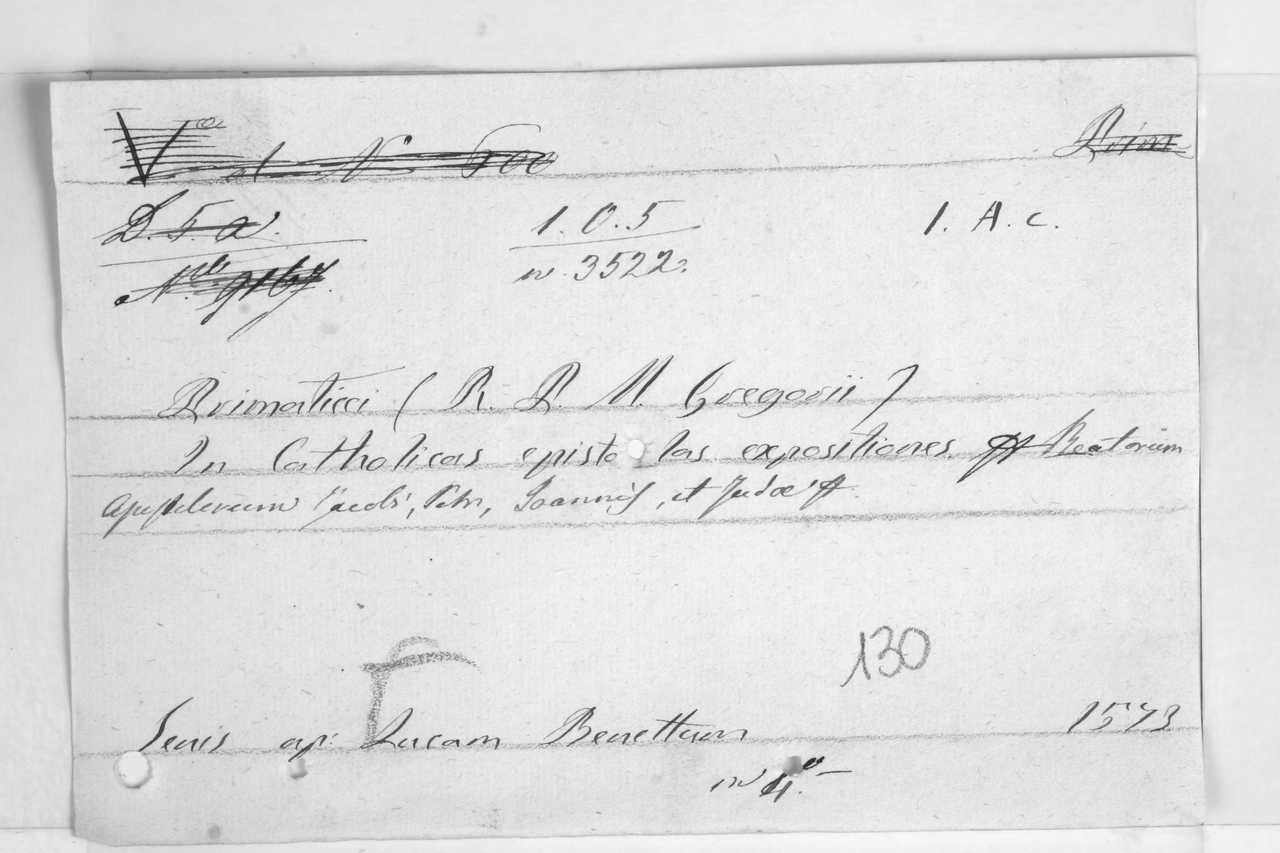 D. 5. a.
1. O. 5
1. A. c.
n. 3522.
Primaticci ( R. P. M. Gregorii )
In Catholicas epistolas expositiones Beatorum
Apostolorum Jacobi, Petri, Joannis, et Judae
130
Senis ap: Lucam Benettum 1573
in 4.º